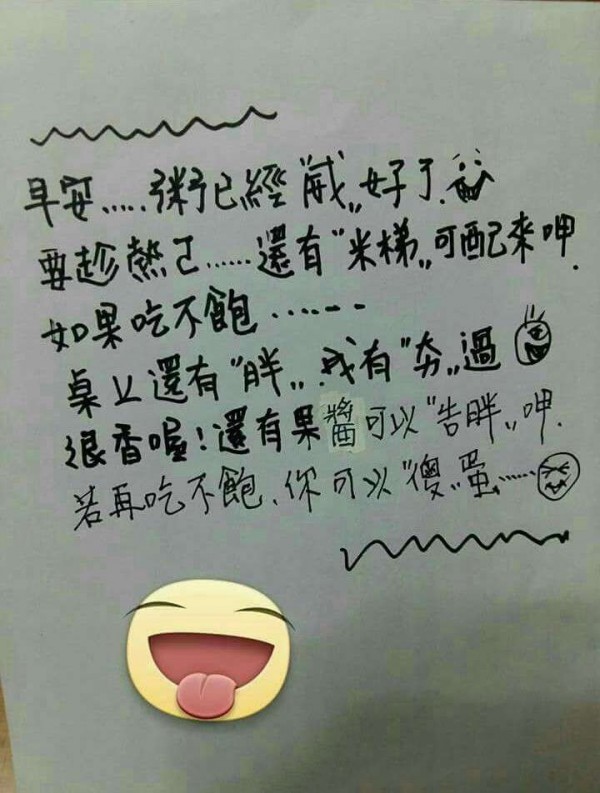 早安.....粥已經"減"好了.
要趁熱ㄛ......還有"米梯"可配來呷.
如果吃不飽......
桌ㄥ還有"胖"、我有"夯"過
很香喔!還有果醬可以"告胖"呷.
若再吃不飽、你可以"傻"蛋......